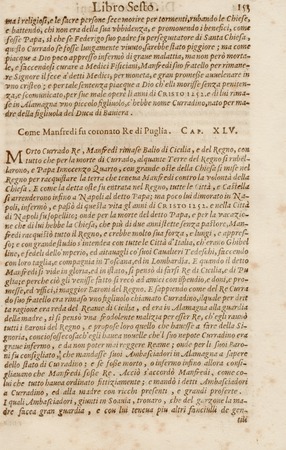 Libro Sesto. 153
ma i religiosi, e le sacre persone fece morire per tormenti, rubando le Chiese,
e battendo, chi non era della sua vbbidenza, e promouendo i benefici, come
fosse Papa, sì che se Federigo suo padre fu persecutore di Santa Chiesa,
questo Currado se fosse lungamente viuuto, sarebbe stato piggiore; ma come
piacque a Dio poco appresso infermò di gran malatia, ma non però morta-
le, e facendosi curare a Medici Fisiciani, Manfredi suo fratello per rimane-
re Signore il fece à detti Medici, per moneta, e gran promesse auuelenare in
vno cristeo; e per tale sentenzia piacque a Dio ch'elli morisse senza peniten-
za, e scomunicato, per sue male opere li anni di CRISTO 1252. e di lui ri-
mase in Alamagna vno piccolo figliuolo, c'hebbe nome Curradino, nato per ma-
dre della figliuola del Duca di Bauiera.
Come Manfredi fu coronato Re di Puglia. CAP. XLV.
MOrto Currado Re, Manfredi rimase Balio di Cicilia, e del Regno, con
tutto che per la morte di Currado, alquante Terre del Regno si rubel-
larono, e Papa Innocenzo Quarto, con grande oste della Chiesa si mise nel
Regno per racquistare la terra che tenena Manfredi contro la volontà della
Chiesa. E come la detta oste fu entrata nel Regno, tutte le Città, e Castella
si arrenderono infino a Napoli al detto Papa; ma poco lui dimorato in Na-
poli, infermò, e passò di questa vita gl'anni di CRISTO 1252. e nella Città
di Napoli fu sopellito; onde per la morte del detto Papa, e per la vacazio-
ne che di lui hebbe la Chiesa, che più di due anni stette senza pastore, Man-
fredi racquistò tutto il Regno, e crebbe molto sua forza, e lungi, e appres-
so; e con grande studio s'intendea con tutte le Città d'Italia, ch'erano Ghibel-
line, e fedeli dello imperio, ed aiutandogli co suoi Caualieri Tedeschi, faccendo
con loro taglia, e compagnia in Toscana, ed in Lombardia. E quando il detto
Manfredi si vide in gloria, ed in istato, si pensò di farsi Re di Cicilia, e di Pu-
glia; e perchè ciò gli venisse fatto si recò ad amici con ispendio, e doni, e pro-
messe, ed vfici, i maggiori Baroni del Regno. E sappiendo come del Re Curra-
do suo fratello era rimaso vno figliuolo chiamato Curradino, il quale per drit-
ta ragione era reda del Reame di Cicilia, ed era in Alamagna alla guardia
della madre, si si pensò vna frodolente malizia per esser Re, ch'egli raunò
tutti i Baroni del Regno, e propose loro quello che hauesse a fare della Si-
gnoria, conciofosse cosa ch'egli hauea nouelle che'l suo nepote Curradino era
graue infermo, e da non poter mai reggere Reame; onde per li suoi Baro-
ni fu consigliato, che mandasse suoi Ambasciadori in Alamagna a sapere
dello stato di Curradino; e se fosse morto, o infermo infino allora consi-
gliauano che Manfredi fosse Re. Acciò s'accordò Manfredi, come co-
lui che tutto hauea ordinato fittiziamente; e mandò i detti Ambasciadori
a Curradino, ed alla madre con ricchi presenti, e grandi proferte.
I quali Ambasciadori, giunti in Soauia, trouaro, che del garzone la ma-
dre facea gran guardia, e con lui teneua più altri fanciulli de gen-
tili